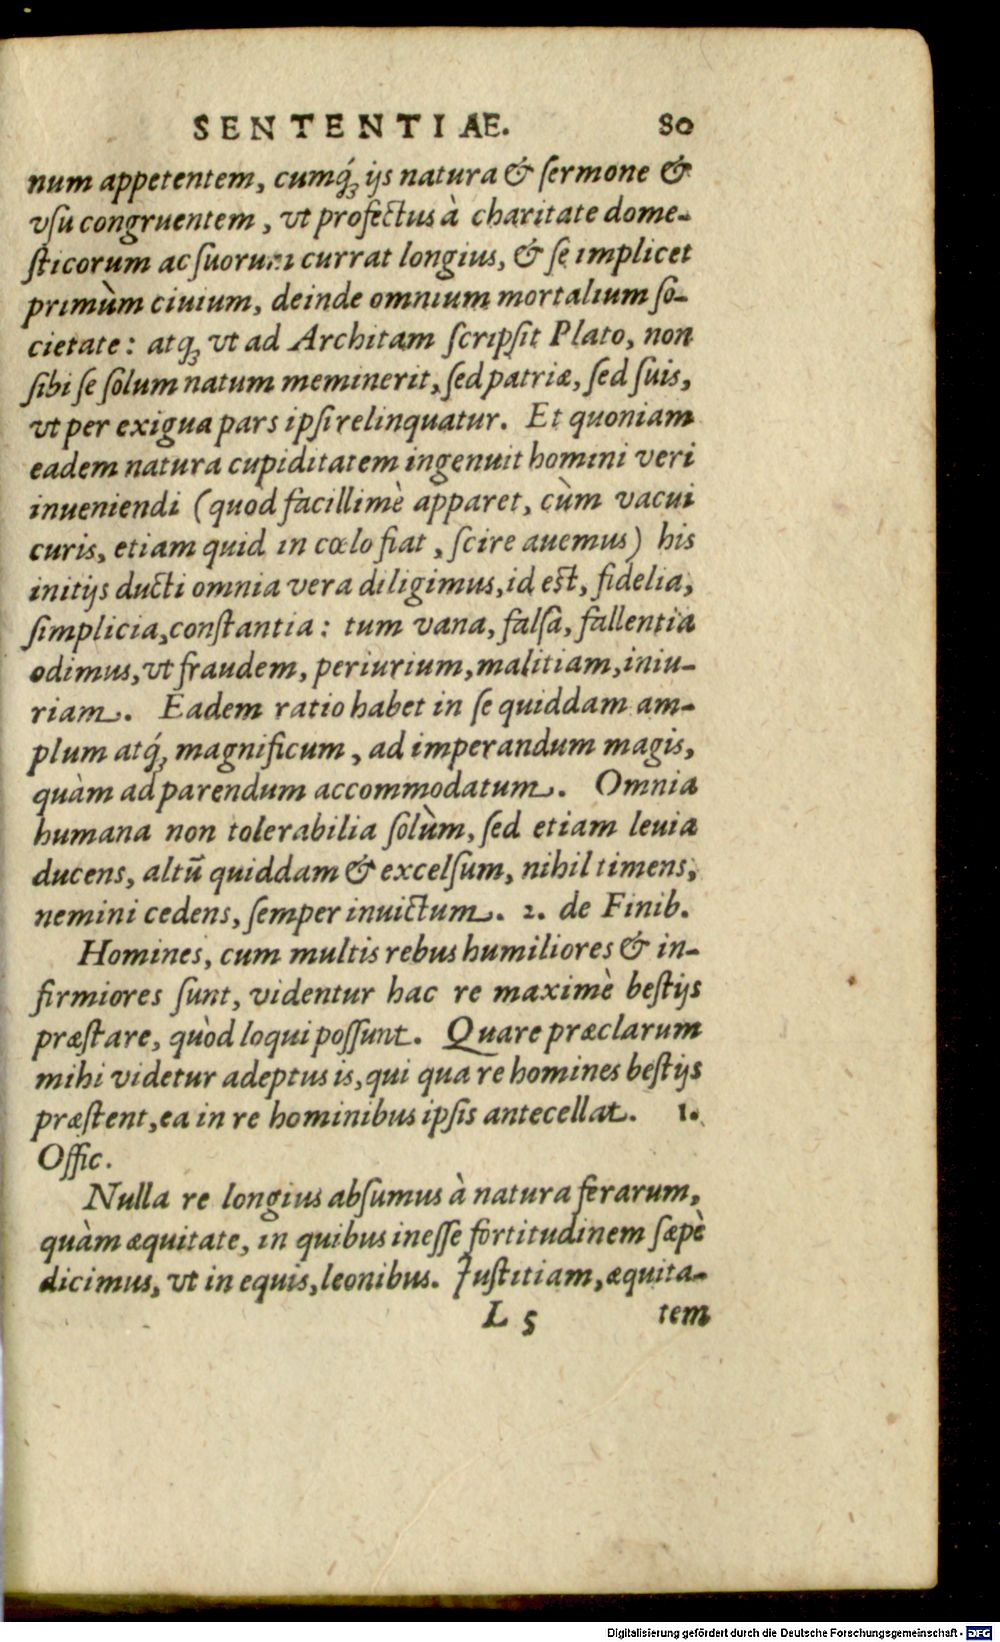 SENTENTIAE. 80
num appetentem, cumq́ꝫ ijs natura & ſermone &
vſu congruentem, vt profectus à charitate dome-
ſticorum ac ſuorum currat longius, & ſe implicet
primùm ciuium, deinde omnium mortalium ſo-
cietate: atqꝫ vt ad Architam ſcripſit Plato, non
ſibi ſe ſolum natum meminerit, ſed patriæ, ſed ſuis,
vt per exigua pars ipſi relinquatur. Et quoniam
eadem natura cupiditatem ingenuit homini veri
inueniendi (quòd facillimè apparet, cùm vacui
curis, etiam quid in cœlo fiat, ſcire auemus) his
initijs ducti omnia vera diligimus, id eſt, fidelia,
ſimplicia, conſtantia: tum vana, falſa, fallentia
odimus, vt fraudem, periurium, malitiam, iniu-
riam. Eadem ratio habet in ſe quiddam am-
plum atq́ꝫ magnificum, ad imperandum magis,
quàm ad parendum accommodatum. Omnia
humana non tolerabilia ſolùm, ſed etiam leuia
ducens, altū quiddam & excelſum, nihil timens,
nemini cedens, ſemper inuictum. 2. de Finib.
Homines, cum multis rebus humiliores & in-
firmiores ſunt, videntur hac re maximè beſtijs
præſtare, quòd loqui poſſunt. Quare præclarum
mihi videtur adeptus is, qui qua re homines beſtijs
præſtent, ea in re hominibus ipſis antecellat. 1.
Offic.
Nulla re longius abſumus à natura ferarum,
quàm æquitate, in quibus ineſſe fortitudinem ſæpè
dicimus, vt in equis, leonibus. Juſtitiam, æquita-
L 5 tem
Digitalisierung gefördert durch die Deutsche Forschungsgemeinschaft - DFG